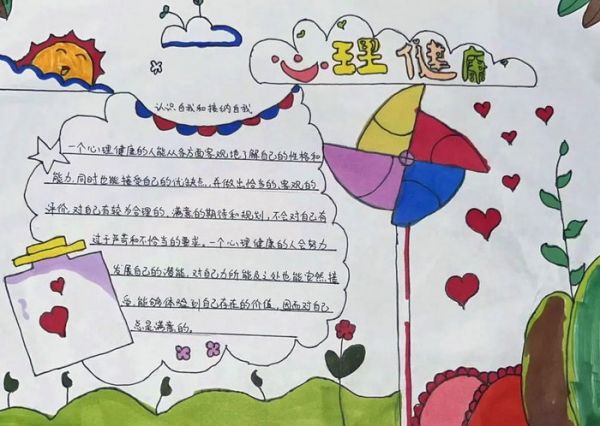 理健康
认识自我和接纳自我
一个心理健康的人能从各方面客观地了解自己的性格和
能力,同时也能接受自己的优缺点,并做出恰当的、客观的
评价,对自己有较为合理的、满意的期待和规划,不会对自己有
过于严苛和不恰当的要求。一个心理健康的人会努力
发展自己的潜能,对自己力所能及之处也能安然接
受,能够体验到自己存在的价值,因而对自己
总是满意的。